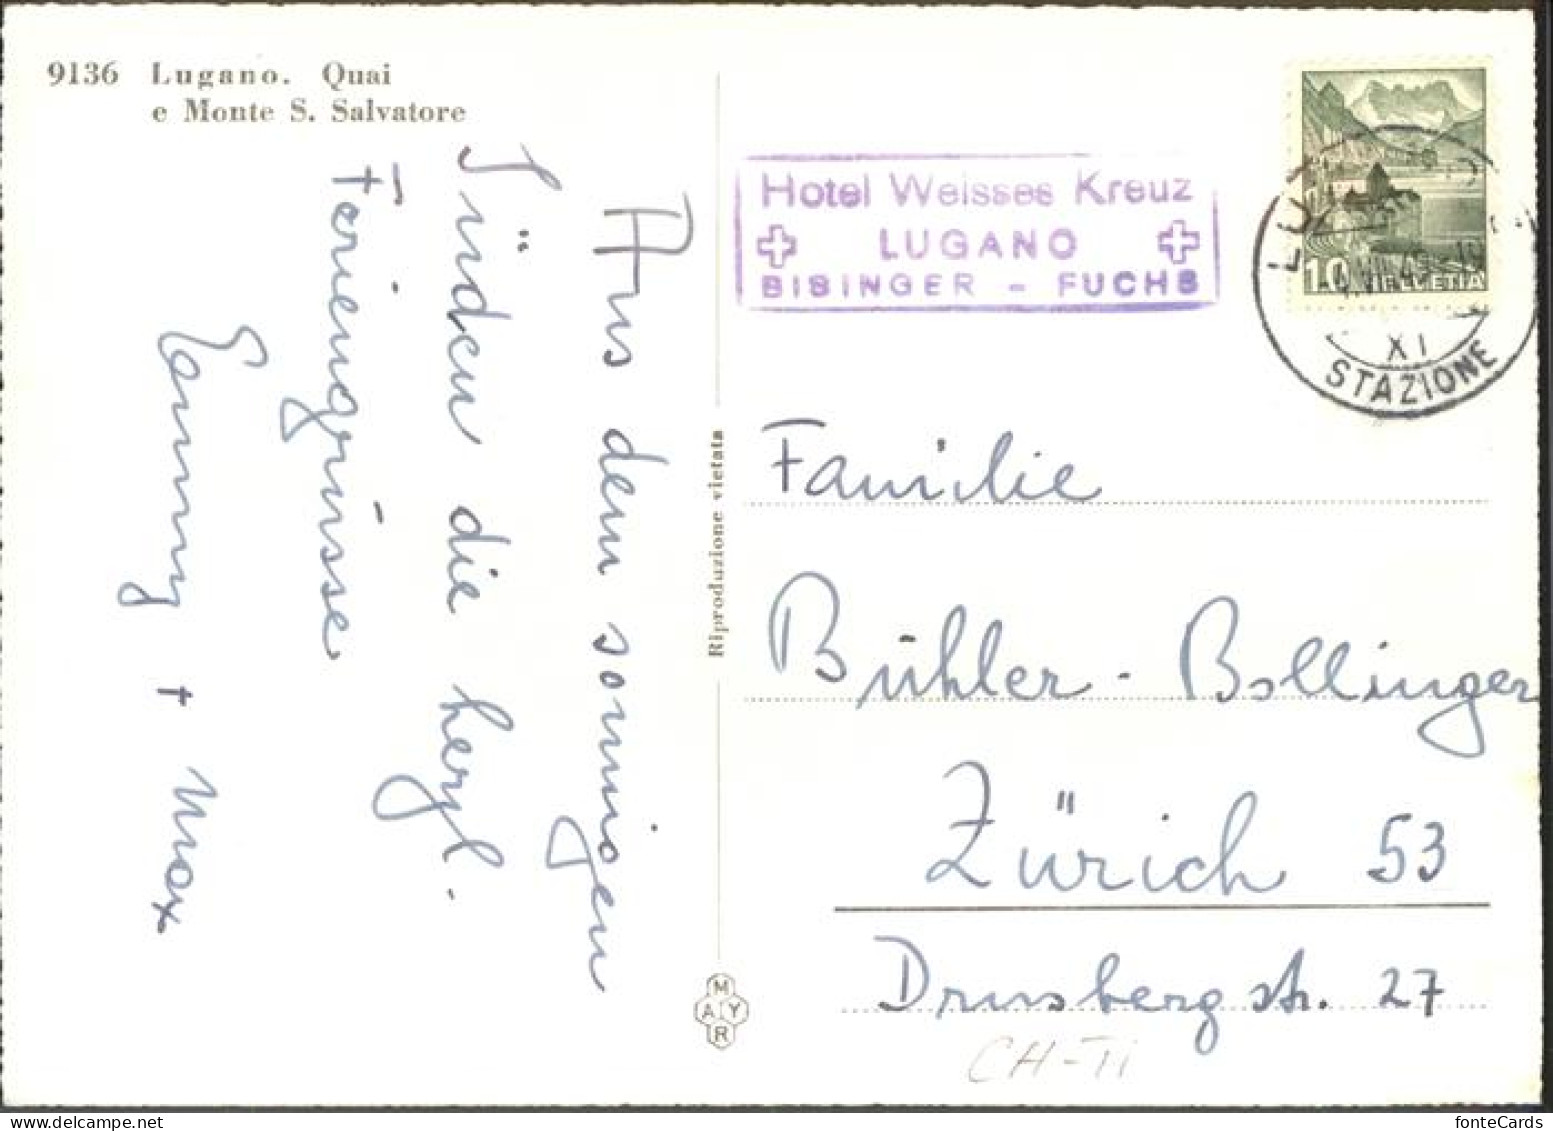 9136 Lugano. Quai
e Monte S. Salvatore
Aus dem sonnigen
Süden die herzl.
Feriengrüsse
Emmy + Max
Riproduzione vietata
MAYR
Hotel Weisses Kreuz
LUGANO
BISINGER - FUCHS
10 HELVETIA
XI
STAZIONE
Familie
Bühler - Bollinger
Zürich 53
Drusbergstr. 27
CH-TI
fonteCards